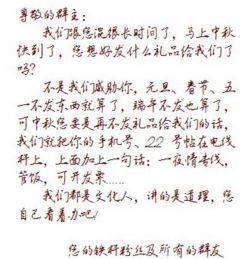 尊敬的群主：
我们跟您混很长时间了，马上中秋
快到了，您想好发什么礼品给我们了
吗？
不是我们威胁你，元旦、春节、五
一不发东西就算了，端午不发也算了，
可中秋您要是再不发礼品给我们的话，
我们就把你的手机号、22 号帖在电线
杆上，上面加上一句话：一夜情专线，
管饭，可开发票……
我们都是文化人，讲的是道理，您
自己看着办吧！
您的铁杆粉丝及所有的群友